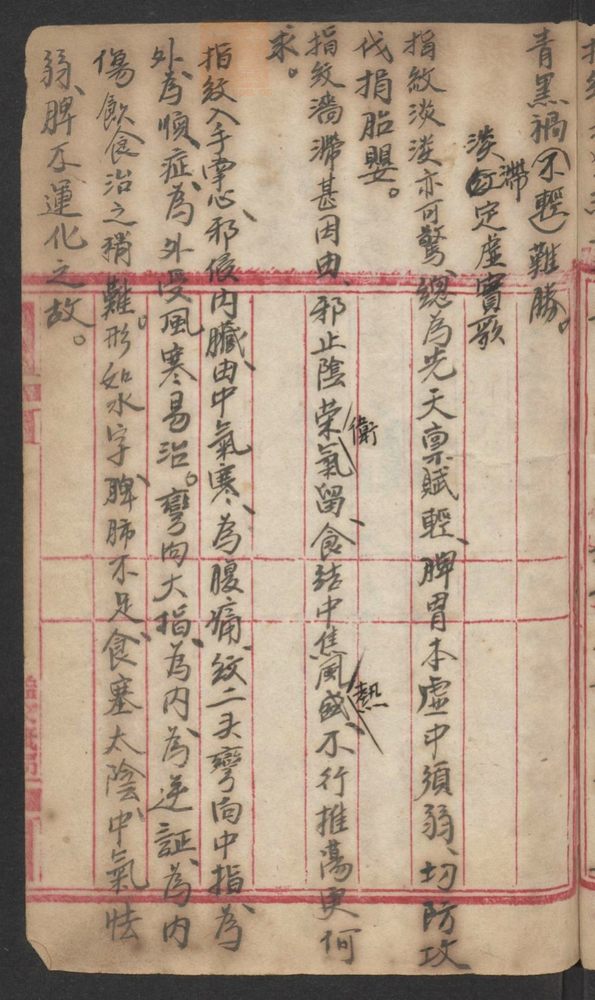 青黑禍不輕難勝。
淡滯定虛實歌
指紋淡淡亦可驚、總為先天禀賦輕、脾胃本虛中須弱、切防攻
伐損胎嬰。
指紋濇滯甚因由、邪止陰荣衛氣留、食結中焦風熱盛、不行推蕩更何
求。
指紋入手掌心、邪侵內臟、由中氣寒、為腹痛、紋二头彎向中指、為
外為順症、為外受風寒易治。彎向大指、為內、為逆証、為內
傷飲食治之稍難。形如水字、脾肺不足、食塞太陰、中氣怯
弱、脾不運化之故。